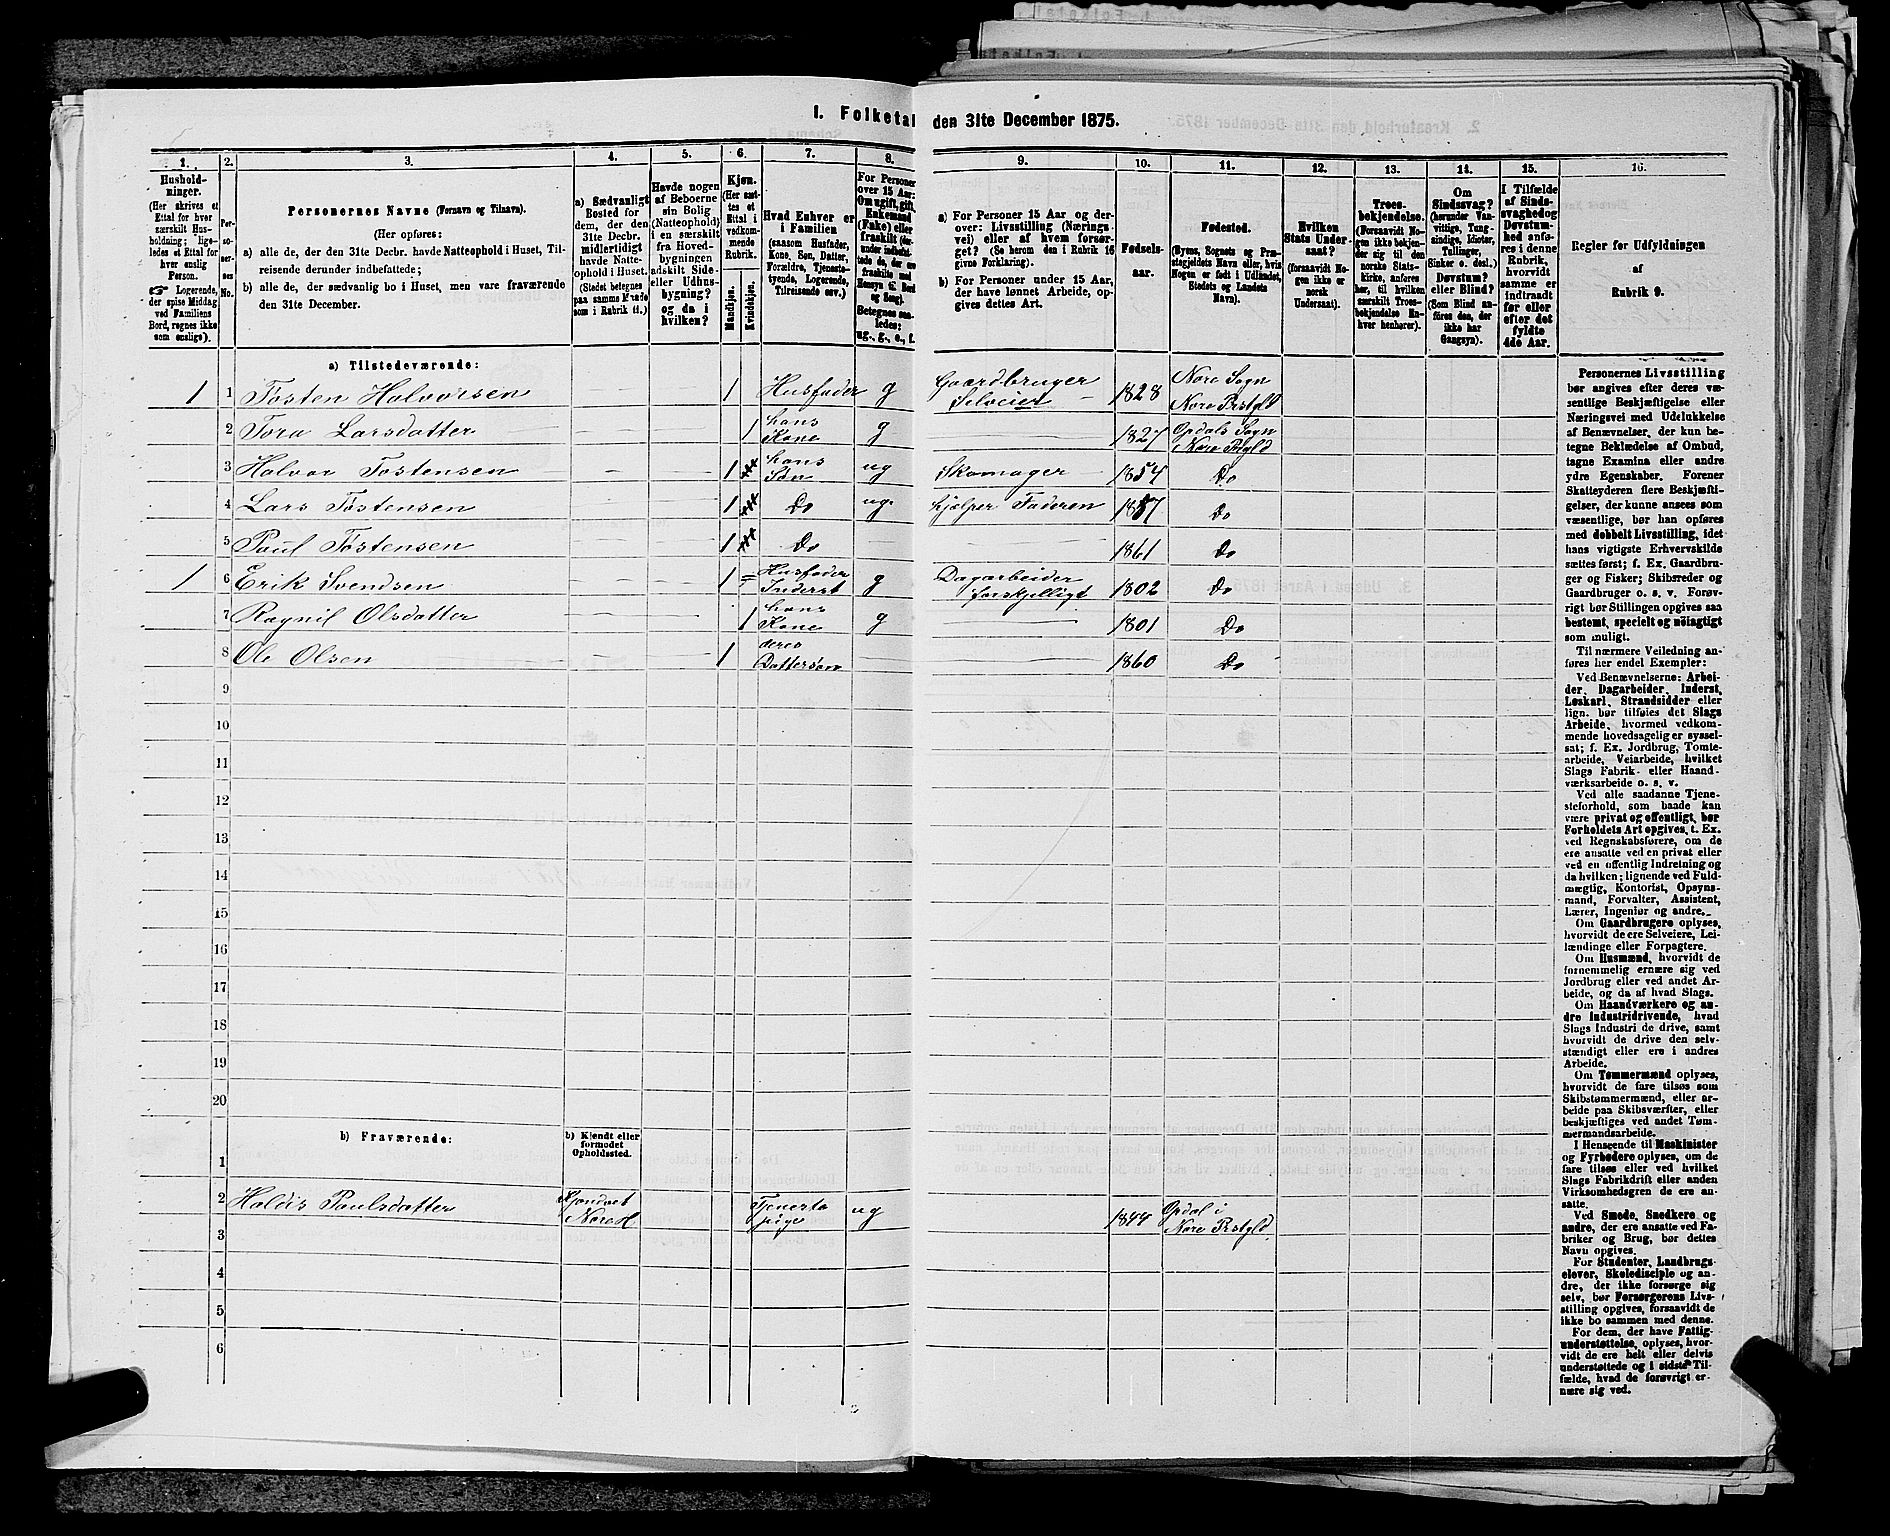 1. Folketal den 31te December 1875.
1. 2. 3. 4. 5. 6. 7. 8. 9. 10. 11. 12. 13. 14. 15. 16.
Hushold-
ninger.
(Her skrives et
Ettal for hver
særskilt Hus-
holdning; lige-
ledes et Ettal for
hver enslig
Person.
☞ Logerende,
der spise Middag
ved Familiens
Bord, regnes ikke
som enslige).
Per-
so-
ner-
nes
No.
Personernes Navne (Fornavn og Tilnavn).
(Her opføres:
a) alle de, der den 31te Decbr. havde Natteophold i Huset, Til-
reisende derunder indbefattede;
b) alle de, der sædvanlig bo i Huset, men vare fraværende
den 31te December.
a) Sædvanligt
Bosted for
dem, der den
31te Decbr.
midlertidigt
havde Natte-
ophold i Huset.
(Stedet betegnes
paa samme Maade
som i Rubrik 11.)
Havde nogen
af Beboerne
sin Bolig
(Natteophold)
i en særskilt
fra Hoved-
bygningen
adskilt Side-
eller Udhus-
bygning?
og da i
hvilken?
Kjøn.
(Her sæt-
tes et
Ettal i
vedkom-
mende
Rubrik.
Mandkjøn.
Kvindekjøn.
Hvad Enhver er
i Familien
(saasom Husfader,
Kone, Søn, Datter,
Forældre, Tjeneste-
tyende, Logerende,
Tilreisende osv.)
For Personer
over 15 Aar:
Om ugift, gift,
Enkemand
(Enke) eller
fraskilt
Betegnes saa-
ledes:
ug., g., e., f.
a) For Personer 15 Aar og der-
over: Livsstilling (Nærings-
vei) eller af hvem forsør-
get? (Se herom den i Rubrik 16
givne Forklaring).
b) For Personer under 15 Aar,
der have lønnet Arbeide, op-
gives dettes Art.
Fødsels-
aar.
Fødested.
(Byens, Sognets og Præ-
stegjeldets Navn eller, hvis
Nogen er født i Udlandet,
Stedets og Landets
Navn).
Hvilken
Stats Under-
saat?
(forsaavidt No-
gen ikke er
norsk
Undersaat).
Troes-
bekjendelse.
(Forsaavidt No-
gen ikke bekjen-
der sig til den
norske Stats-
kirke, anføres
her, til hvilken
særskilt Troes-
bekjendelse En-
hver henhører).
Om
Sindssvag?
(herunder Van-
vittige, Tung-
sindige, Idioter,
Tullinger,
Sinker o. desl.)
Døvstum?
eller Blind?
(Som Blind an-
føres den, der
ikke har
Gangsyn).
I Tilfælde
af Sinds-
svaghed og
Døvstum-
hed anfø-
res i denne
Rubrik,
hvorvidt
samme er
indtraadt
før eller
efter det
fyldte
4de Aar.
Regler for Udfyldningen
af
Rubrik 9.
a) Tilstedeværende:
1 1 Tosten Halvorsen 1 Husfader g Gaardbruger Selveier 1828 Nore Sogn Nore Prstgld
2 Tora Larsdatter 1 hans Kone g 1827 Opdals Sogn i Nore Prstgld
3 Halvor Tostensen 1 hans Søn ug Skomager 1854 Do
4 Lars Tostensen 1 Do ug. hjelper Faderen 1857 Do
5 Paul Tostensen 1 Do 1861 Do
1 6 Erik Svendsen 1 Husfader Inderst g Dagarbeider forskjelligt 1802 Do
7 Ragnil Olsdatter 1 hans Kone g 1801 Do
8 Ole Olsen 1 deres Dattersøn 1860 Do
9
10
11
12
13
14
15
16
17
18
19
20
b) Fraværende:
b) Kjendt eller
formodet
Opholdssted.
1
2 Haldis Paulsdatter Nore Tjenesta pige ug 1844 Opdal i Nore Prstgld.
3
4
5
6
Personernes Livsstilling
bør angives efter deres væ-
sentlige Beskjæftigelse eller
Næringsvei med Udelukkelse
af Benævnelser, der kun be-
tegne Beklædelse af Ombud,
tagne Examina eller andre
ydre Egenskaber. Forener
Skatteyderen flere Beskjæfti-
gelser, der kunne ansees som
væsentlige, bør han opføres
med dobbelt Livsstilling, idet
hans vigtigste Erhvervskilde
sættes først; f. Ex. Gaardbru-
ger og Fisker; Skibsreder og
Gaardbruger o. s. v. Forøv-
rigt bør Stillingen opgives saa
bestemt, specielt og nøiagtigt
som muligt.
Til nærmere Veiledning an-
føres her endel Exempler:
Ved Benævnelserne: Arbei-
der, Dagarbeider, Inderst,
Løskarl, Strandsidder eller
lign. bør tilføies det Slags
Arbeide, hvormed vedkom-
mende hovedsagelig er syssel-
sat; f. Ex. Jordbrug, Tomte-
arbeide, Veiarbeide, hvilket
Slags Fabrik- eller Haand-
værksarbeide o. s. v.
Ved alle saadanne Tjene-
steforhold, som baade kan
være privat og offentligt, bør
Forholdets Art opgives, t. Ex.
ved Regnskabsførere, om de
ere ansatte ved en privat eller
ved en offentlig Indretning og
da hvilken; lignende ved Fuld-
mægtig, Kontorist, Opsyns-
mand, Forvalter, Assistent,
Lærer, Ingeniør og andre.
Om Gaardbrugere oplyses,
hvorvidt de ere Selveiere, Lei-
lændinge eller Forpagtere.
Om Husmænd, hvorvidt de
fornemmelig ernære sig ved
Jordbrug eller ved andet Ar-
beide, og da af hvad Slags.
Om Haandværkere og an-
dre industridrivende, hvad
Slags Industri de drive, samt
hvorvidt de drive den selv-
stændigt eller ere i andres
Arbeide.
Om Tømmermænd oplyses,
hvorvidt de fare tilsøs som
Skibstømmermænd, eller ar-
beide paa Skibsværfter, eller
beskjæftiges ved andet Tøm-
mermandsarbeide.
I Henseende til Maskinister
og Fyrbødere oplyses, om de
fare tilsøs eller ved hvilket
Slags Fabrikdrift eller anden
Virksomhedsgren de ere an-
satte.
Ved Smede, Snedkere og
andre, der ere ansatte ved Fa-
briker og Brug, bør dettes
Navn opgives.
For Studenter, Landbrugs-
elever, Skoledisciple og an-
dre, der ikke forsørge sig
selv, bør Forsørgerens Livs-
stilling opgives, forsaavidt de
ikke bo sammen med denne.
For dem, der have Fattig-
understøttelse, oplyses, hvor-
vidt de ere helt eller delvis
understøttede og i sidste Til-
fælde, hvad de forøvrigt er-
nære sig ved.